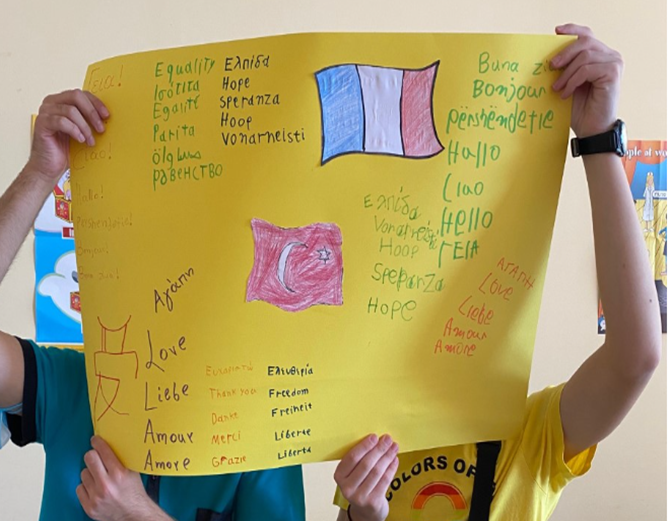 Γεια!
Ciao!
Hallo!
Equality
Ισότιτα
Egalité
Parita
равенство
Ελπίδα
Hope
Speranza
Hoop
Vonarneisti
Buna
Bonjour
përshëndetje
Hallo
Ciao
Hello
ΓΕΙΑ
Ελπίδα
Hoop
Speranza
Hope
ΑΓΑΠΗ
Love
Liebe
Amour
Amore
Αγάπη
Love
Liebe
Amour
Amore
Ευχαριστώ
Thank you
Danke
Merci
Grazie
Ελευθερία
Freedom
Freiheit
Liberte
Liberta
COLORS OF